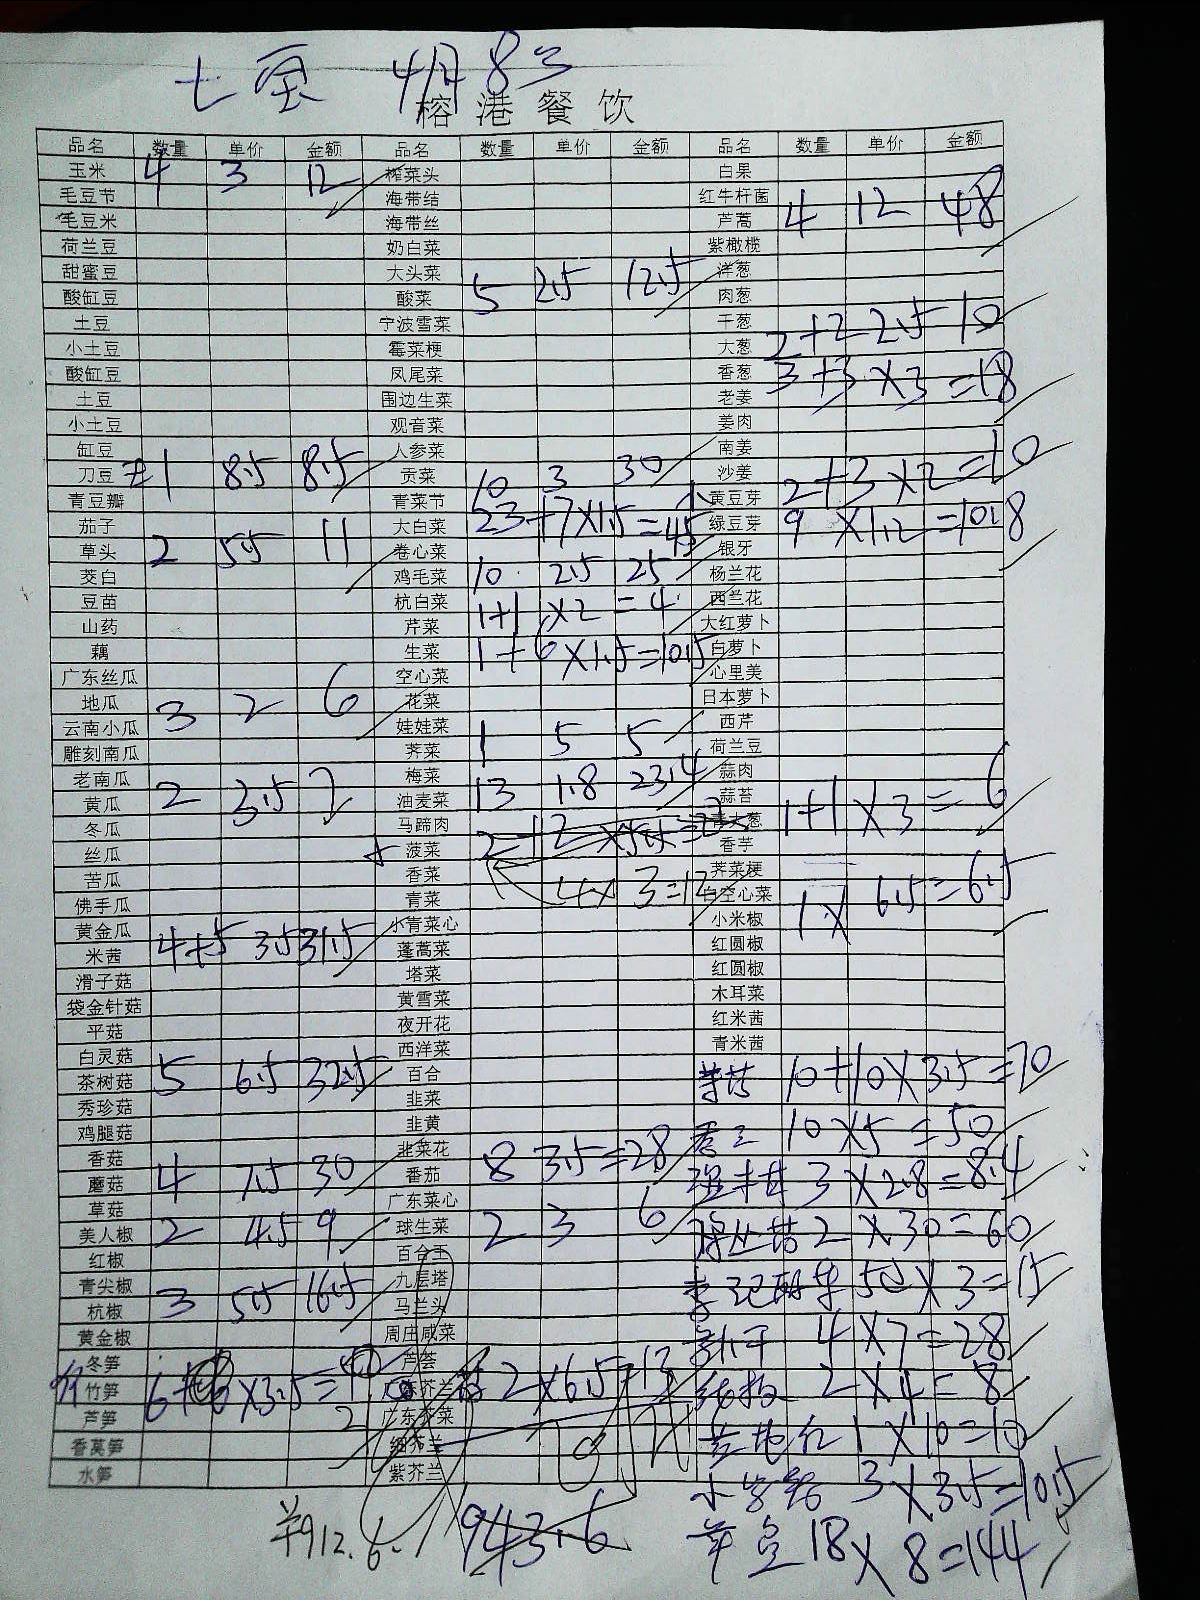 七宝 4月8号
榕港餐饮
品名 数量 单价 金额 品名 数量 单价 金额 品名 数量 单价 金额
玉米 4 3 12 榨菜头 白果
毛豆节 海带结 红牛杆菌
毛豆米 海带丝 芦蒿 4 12 48
荷兰豆 奶白菜 紫橄榄
甜蜜豆 大头菜 洋葱
酸缸豆 酸菜 5 2.5 12.5 肉葱
土豆 宁波雪菜 干葱
小土豆 霉菜梗 大葱 2+2 2.5 10
酸缸豆 凤尾菜 香葱 3+3×3=18
土豆 围边生菜 老姜
小土豆 观音菜 姜肉
缸豆 人参菜 南姜
刀豆 1 8.5 8.5 贡菜 10 3 30 沙姜 2+3×2=10
青豆瓣 青菜节 黄豆芽
茄子 大白菜 23+7×1.5=45 绿豆芽 9×1.2=10.8
草头 2 5.5 11 卷心菜 银牙
茭白 鸡毛菜 10 2.5 25 杨兰花
豆苗 杭白菜 1+1×2=4 西兰花
山药 芹菜 大红萝卜
藕 生菜 1+6×1.5=10.5 白萝卜
广东丝瓜 空心菜 心里美
地瓜 3 2 6 花菜 日本萝卜
云南小瓜 娃娃菜 1 5 5 西芹
雕刻南瓜 荠菜 荷兰豆
老南瓜 梅菜 蒜肉
黄瓜 2 3.5 7 油麦菜 13 1.8 23.4 蒜苔 1+1×3=6
冬瓜 马蹄肉 青大葱
丝瓜 菠菜 香芋
苦瓜 香菜 4× 3=12 荠菜梗
佛手瓜 青菜 白空心菜 1× 6.5=6.5
黄金瓜 小青菜心 小米椒
米茜 4+5 3.5 31.5 蓬蒿菜 红圆椒
滑子菇 塔菜 红圆椒
袋金针菇 黄雪菜 木耳菜
平菇 夜开花 红米茜
白灵菇 西洋菜 青米茜
茶树菇 5 6.5 32.5 百合 10+10×3.5=70
秀珍菇 韭菜
鸡腿菇 韭黄 10×5=50
香菇 韭菜花
蘑菇 4 7.5 30 番茄 8 3.5=28 3×2.8=8.4
草菇 广东菜心
美人椒 2 4.5 9 球生菜 2 3 6 2×30=60
红椒 百合王
青尖椒 九层塔 50×3=15
杭椒 3 5.5 16.5 马兰头
黄金椒 周庄咸菜 4×7=28
冬笋 芦荟
竹笋 芥兰 2×6.5=13 2×4=8
芦笋 广东芥菜
香莴笋 细芥兰 1×10=10
水笋 紫芥兰
3×3.5=10.5
¥912.6. 943.6 18×8=144